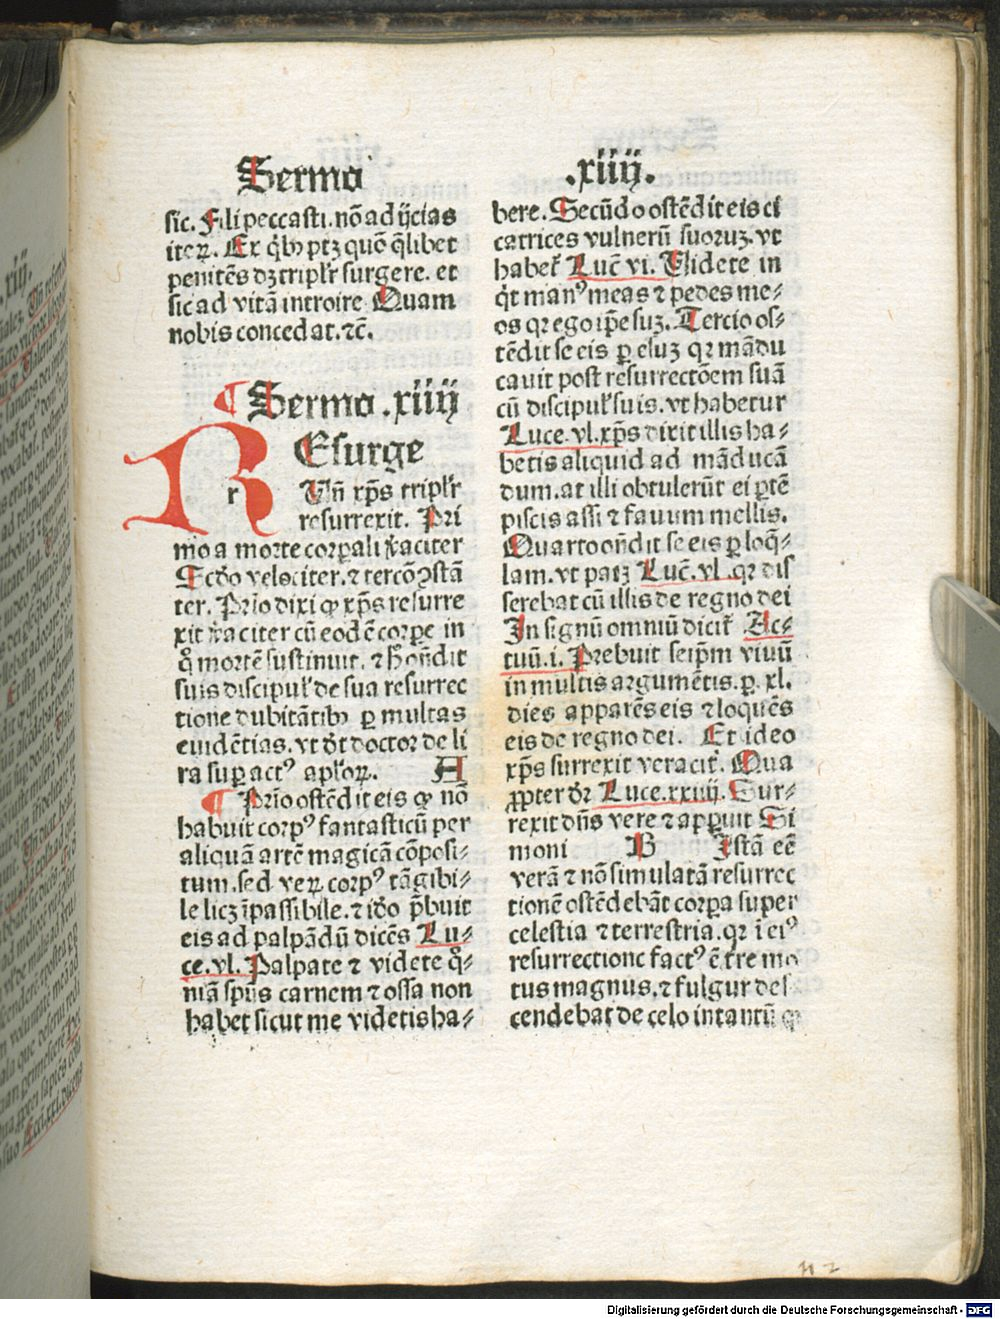 Sermo .xiiij.
sic. Fili peccasti. nō ad ijcias
iteꝝ. Ex q̄lꝫ ptꝫ quō q̄libet
penitēs dꝫ tripl'r surgere. et
sic ad vitā introire Quam
nobis conced at. ⁊c̄.
¶ Sermo .xiiij
REsurge
r Vn̄ xp̄s tripl'r
resurrexit. Pri
mo a morte corꝑali v̄aciter
Scd̄o velociter. ⁊ tercō ꝯstā
ter. Prīo dixi ꝙ xp̄s resurre
xit v̄aciter cū eodē corꝑe in
q̄ mortē sustinuit. ⁊ h̄ ōn̄dit
suis discipul' de sua resurrec
tione dubitātibꝫ ꝑ multas
euidētias. vt dt̄ doctor de li
ra suꝑ actꝰ apl'oꝝ. A
¶ Prīo ostēdit eis ꝙ nō
habuit corpꝰ fantasticū per
aliquā artē magicā cōposi⸗
tum. sed veꝝ corpꝰ tāgibi⸗
le licꝫ īpassibile. ⁊ iō p̄buit
eis ad palpādū dicēs Lu⸗
ce. vl. Palpate ⁊ videte q̄⸗
niā sp̄us carnem ⁊ ossa non
habet sicut me videtis ha⸗
bere. Secūdo ostēdit eis ci
catrices vulnerū suoruꝫ. vt
habet' Luc̄ vi. Videte in
q't manꝰ meas ⁊ pedes me⸗
os qꝛ ego ip̄e suꝫ. Tercio os⸗
tēdit se eis ꝑ esuꝫ qꝛ mādu
cauit post resurrectōem suā
cū discipul' suis. vt habetur
Luce. vl. xp̄s dixit illis ha⸗
betis aliquid ad māducā
dum. at illi obtulerūt ei ꝑtē
piscis assi ⁊ fauum mellis.
Quarto ōn̄dit se eis ꝑ loq̄⸗
lam. vt patꝫ Luc̄. vl. qꝛ dis
serebat cū illis de regno dei
In signū omniū dicit' Ac⸗
tuū. i. Prebuit seip̄m viuū
in multis argumētis. ꝑ. xl.
dies apparēs eis ⁊ loquēs
eis de regno dei. Et ideo
xp̄s surrexit veracit'. Qua
ꝓpter dr̄ Luce. xxiiij. Sur⸗
rexit dn̄s vere ⁊ apꝑuit Si
moni B Istā eē
verā ⁊ nō simulatā resurrec
tionē ostēdebāt corꝑa super
celestia ⁊ terrestria. qꝛ ī eiꝰ
resurrectione factꝰ ē t're mo
tus magnus. ⁊ fulgur des
cendebat de celo intantū ꝙ
Digitalisierung gefördert durch die Deutsche Forschungsgemeinschaft - DFG